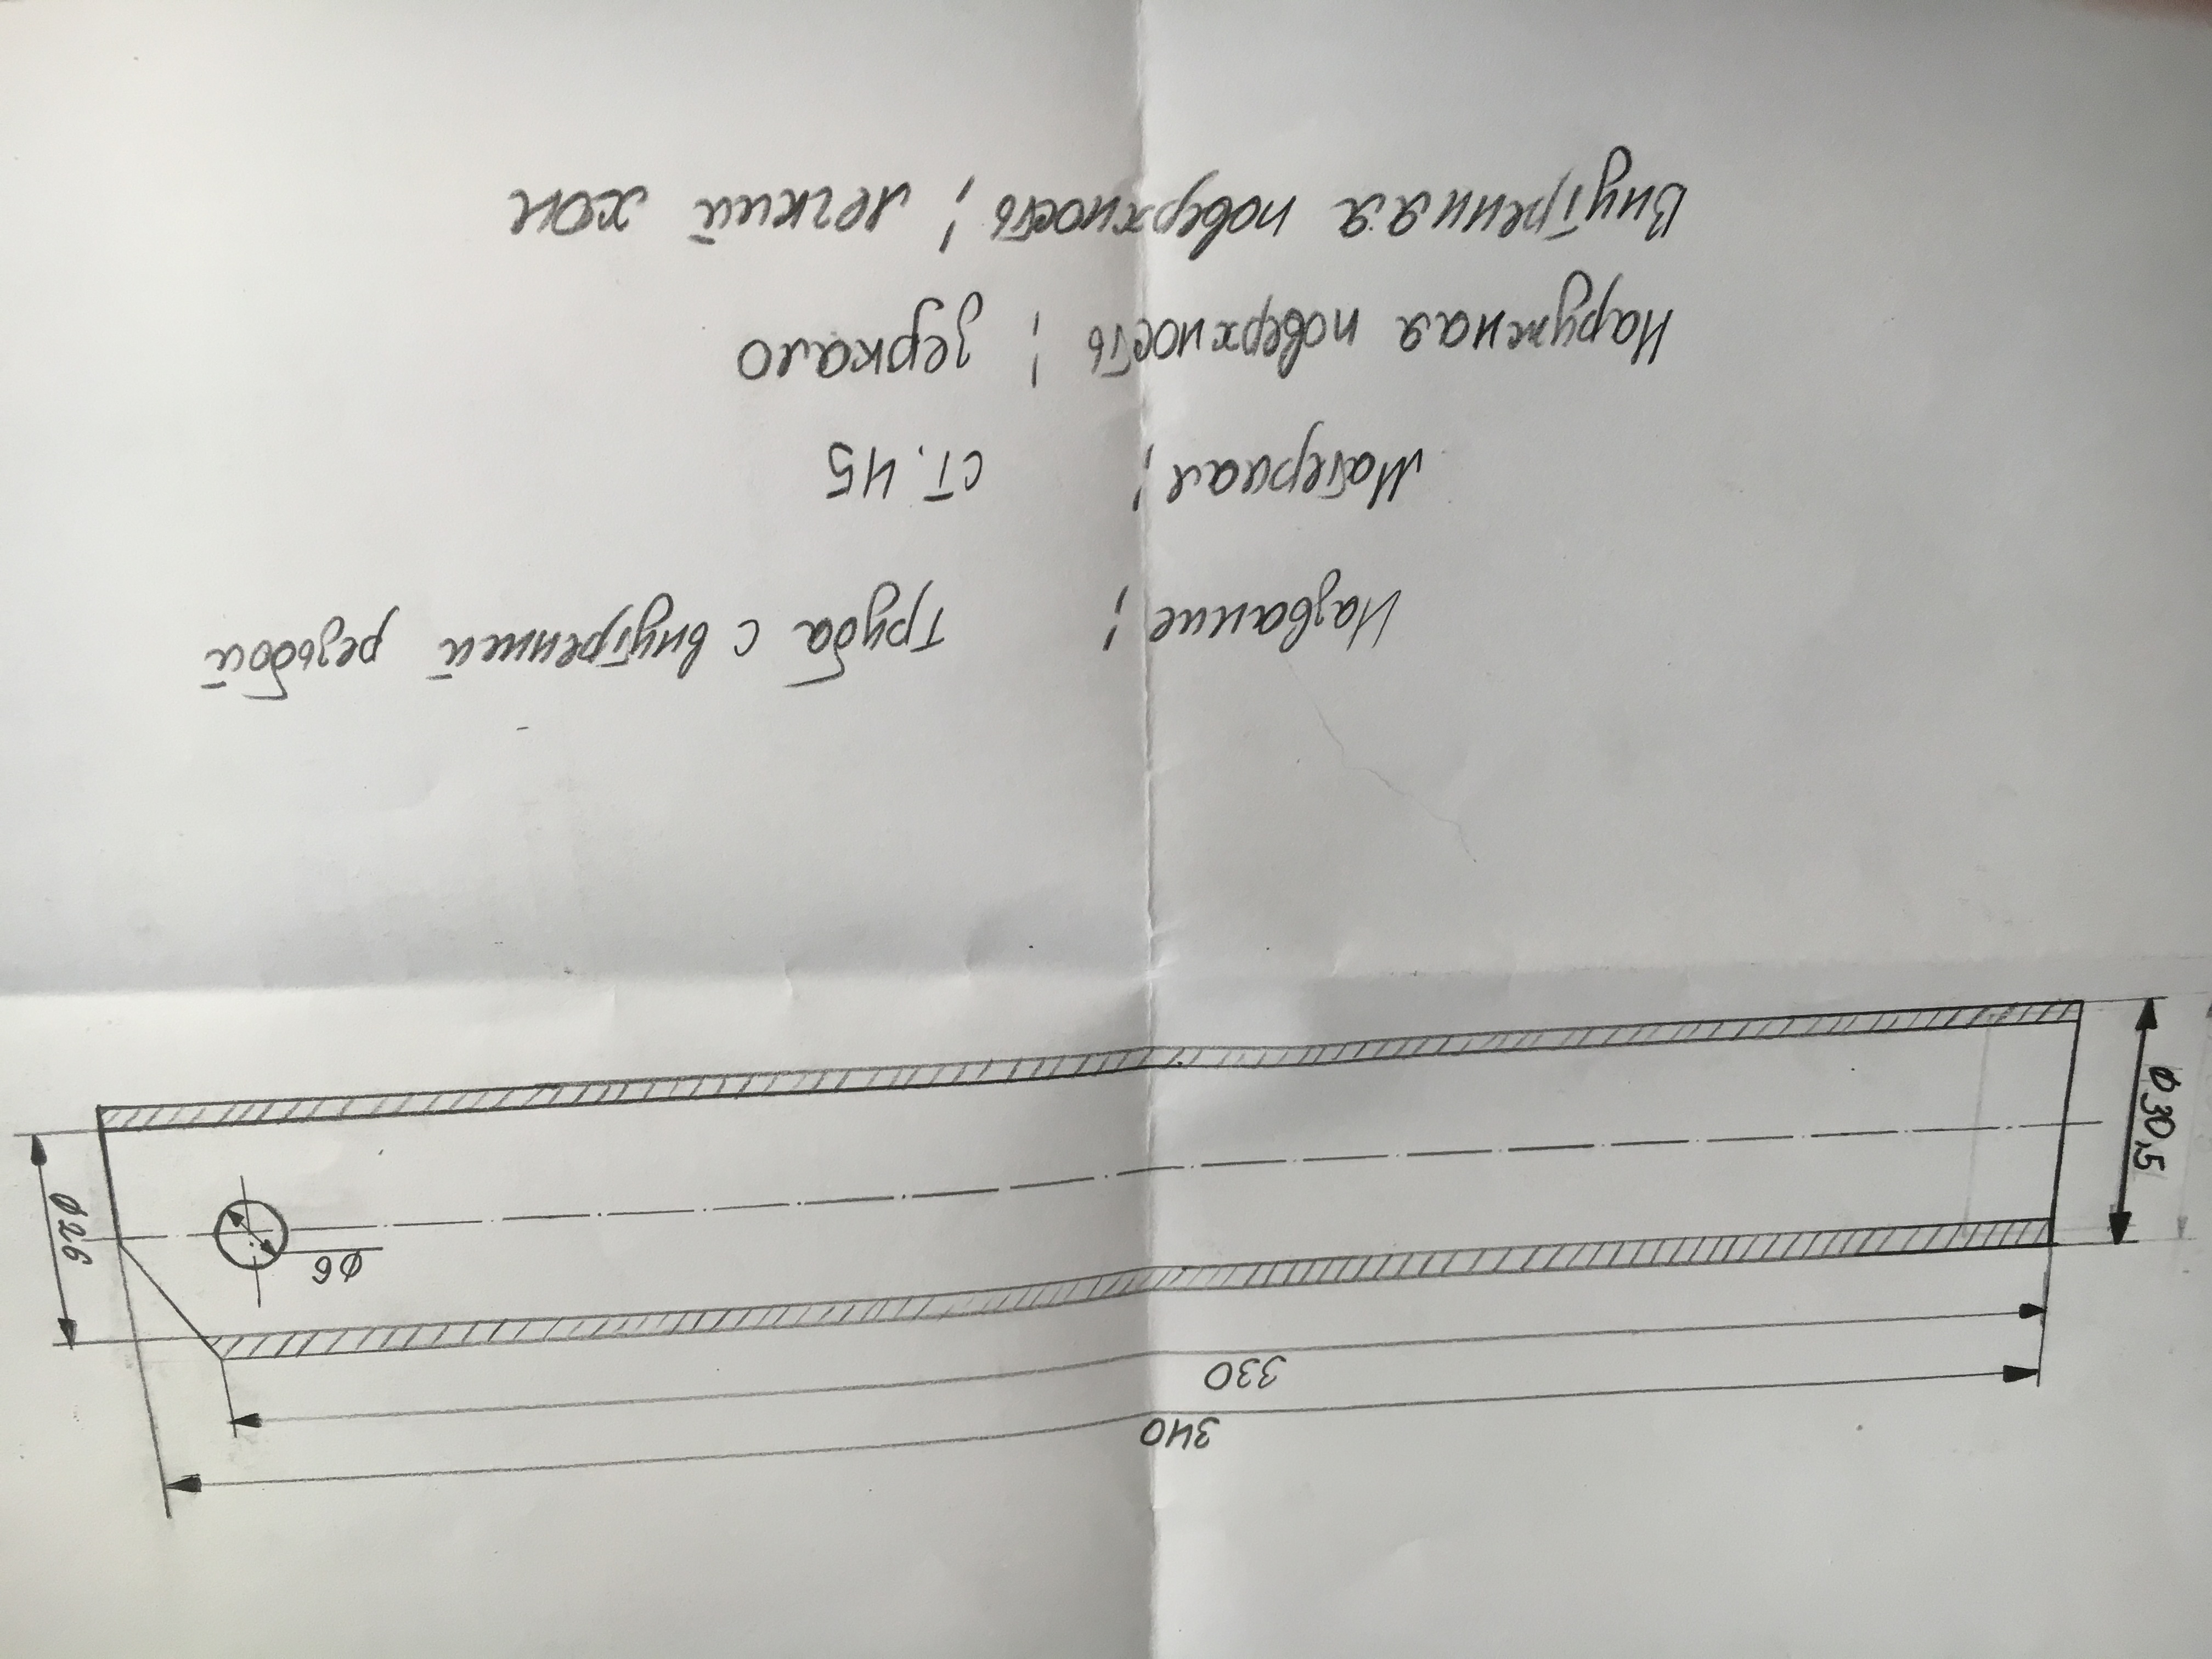 340
330
ø6
ø26
ø30,5
Название; труба с внутренней резьбой
Материал; ст. 45
Наружная поверхность; зеркало
Внутренняя поверхность; легкий хон